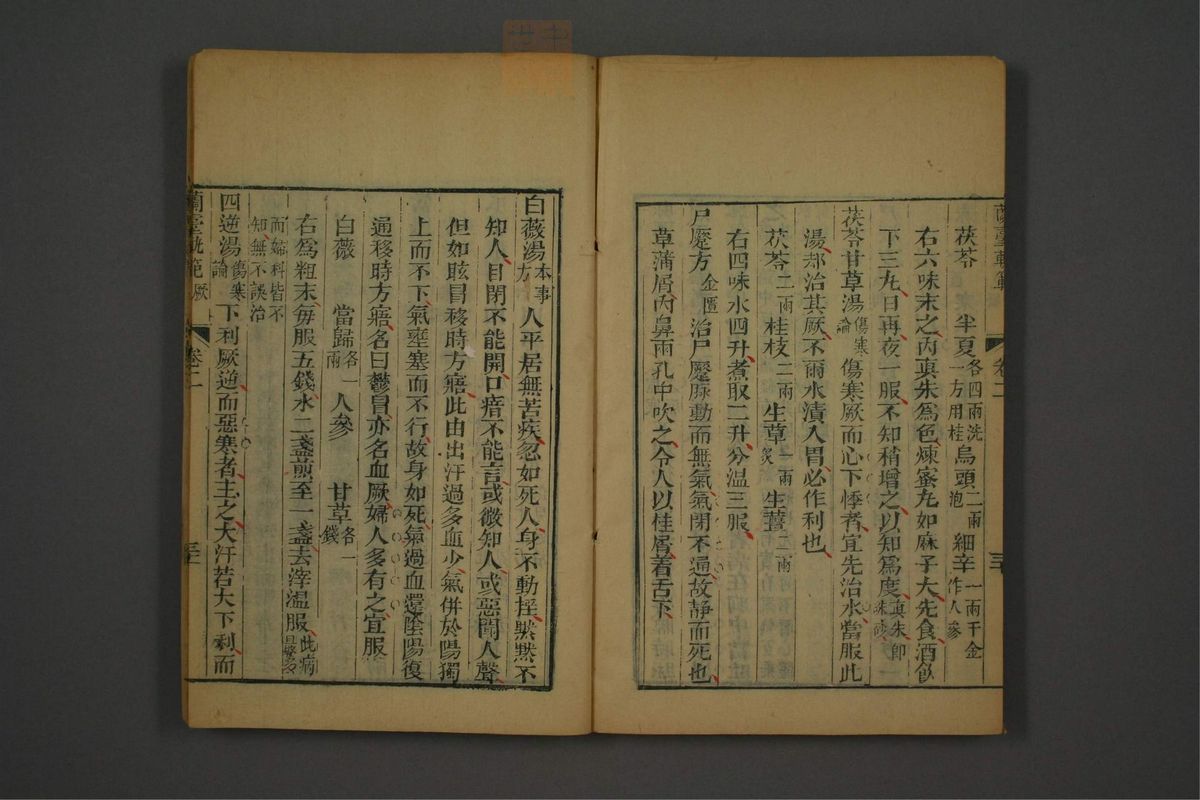 蘭臺軌範 卷二 三十
茯苓 半夏各四兩洗一方用桂 烏頭二兩泡 細辛一兩千金作人參
右六味末之內真朱爲色煉蜜丸如麻子大先食酒飲
下三丸日再夜一服不知稍增之以知爲度真朱卽硃砂
茯苓甘草湯傷寒論 傷寒厥而心下悸者宜先治水當服此
湯却治其厥不爾水漬入胃必作利也
茯苓二兩 桂枝二兩 生草一兩炙 生薑二兩
右四味水四升煮取二升分溫三服
尸蹷方金匱 治尸蹷脉動而無氣氣閉不通故靜而死也
草蒲屑內鼻兩孔中吹之令人以桂屑着舌下
白薇湯本事方 人平居無苦疾忽如死人身不動揺黙黙不
知人目閉不能開口瘖不能言或微知人或惡聞人聲
但如眩冒移時方寤此由出汗過多血少氣併於陽獨
上而不下氣壅塞而不行故身如死氣過血還陰陽復
通移時方寤名曰鬱冒亦名血厥婦人多有之宜服
白薇 當歸各一兩 人參 甘草各一錢
右爲粗末每服五錢水二盞煎至一盞去滓溫服此病甚多
而婦科皆不知無不誤治
四逆湯傷寒論 下利厥逆而惡寒者主之大汗若大下利而
蘭臺軌範 厥 卷二 三十一